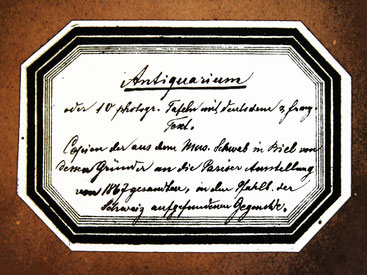 Antiquarium
oder 10 photogr. Tafeln mit deutschem & franz.
Text.
Copien der aus dem Mus. Schwab in Biel von
dessen Gründer an die Pariser Ausstellung
von 1867 gesandten, in den Pfahlb. der
Schweiz aufgefundenen Gegenstde.